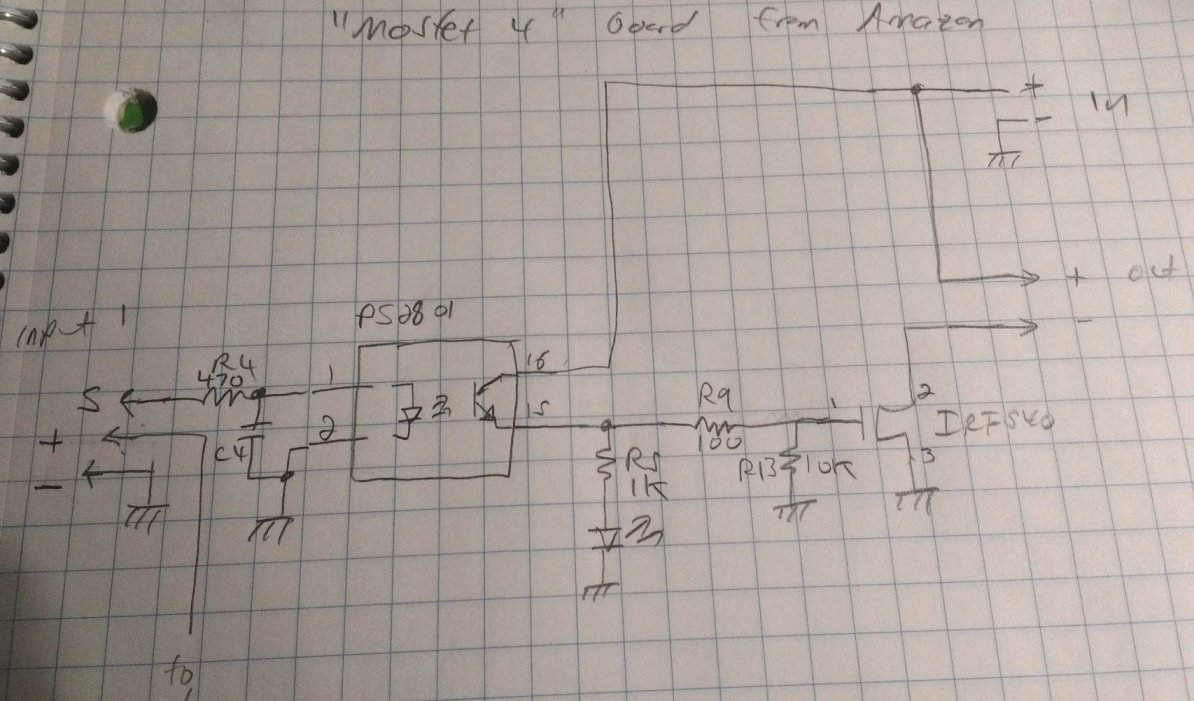 "Mosfet 4" Board from Amazon
+
IN
-
+ out
-
Input 1
PS2801
R4
470
S
1
16
+
2
15
C4
-
R9
100
1
2
IRF540
3
R5
1K
R13 10K
to